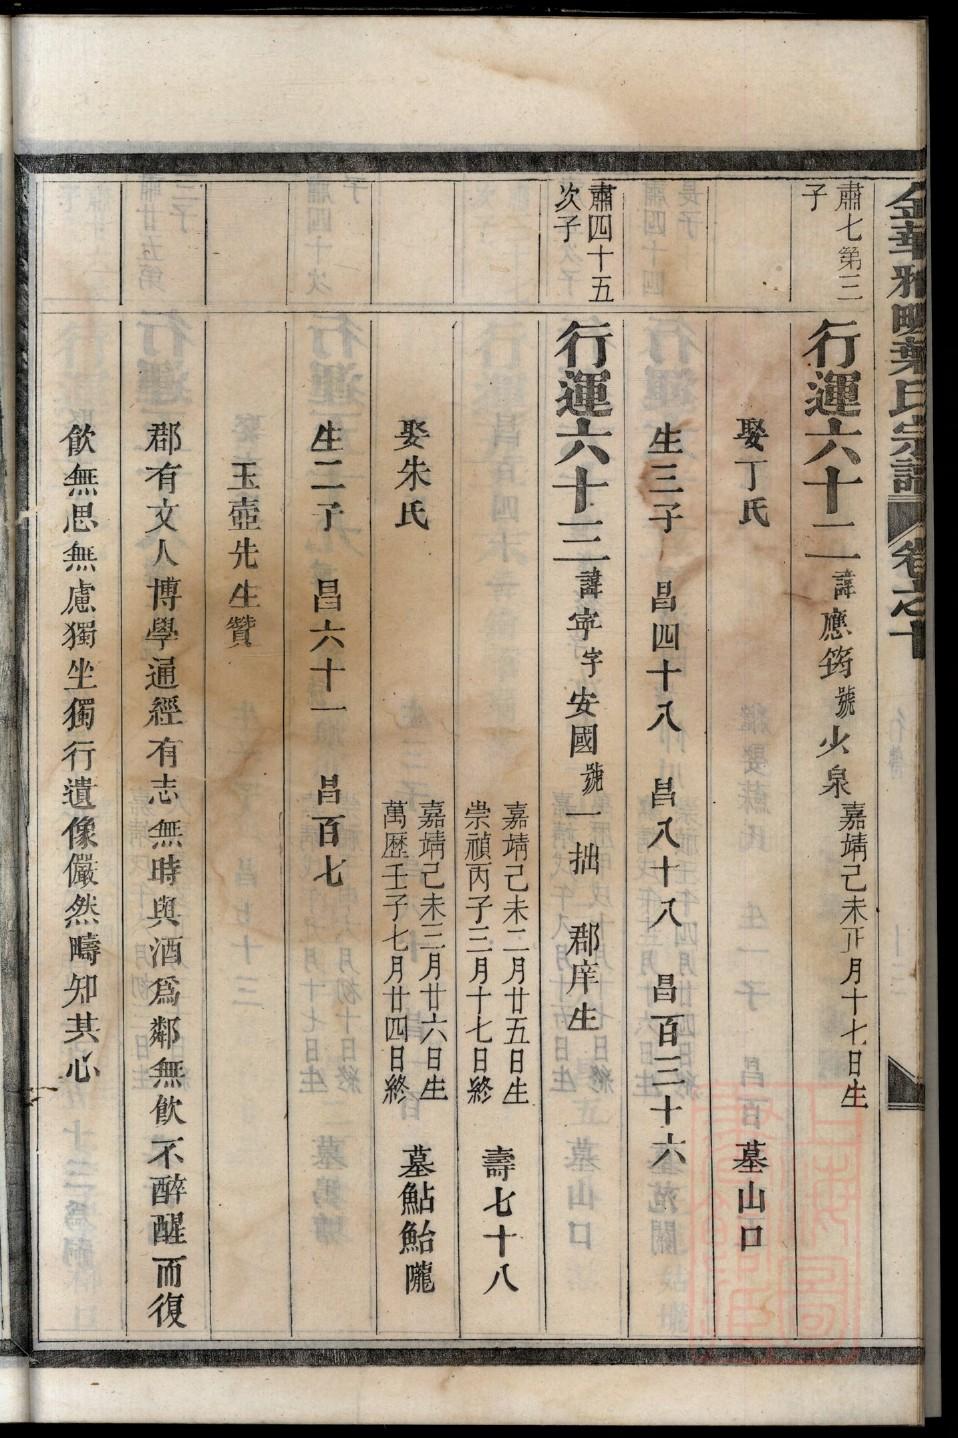 金華雅畈葉氏宗譜 卷之十
肅七第三子
行運六十二 諱應筠號火泉 嘉靖己未正月十七日生
娶丁氏 墓山口
生三子 昌四十八 昌八十八 昌百三十六
肅四十五次子
行運六十三 諱寜字安國號一拙 郡庠生
嘉靖己未二月廿五日生
崇禎丙子三月十七日終 壽七十八
娶朱氏 嘉靖己未三月廿六日生
萬歷壬子七月廿四日終 墓鮎鮐隴
生二子 昌六十一 昌百七
玉壺先生贊
郡有文人博學通經有志無時與酒爲鄰無飲不醉醒而復
飲無思無慮獨坐獨行遺像儼然疇知其心